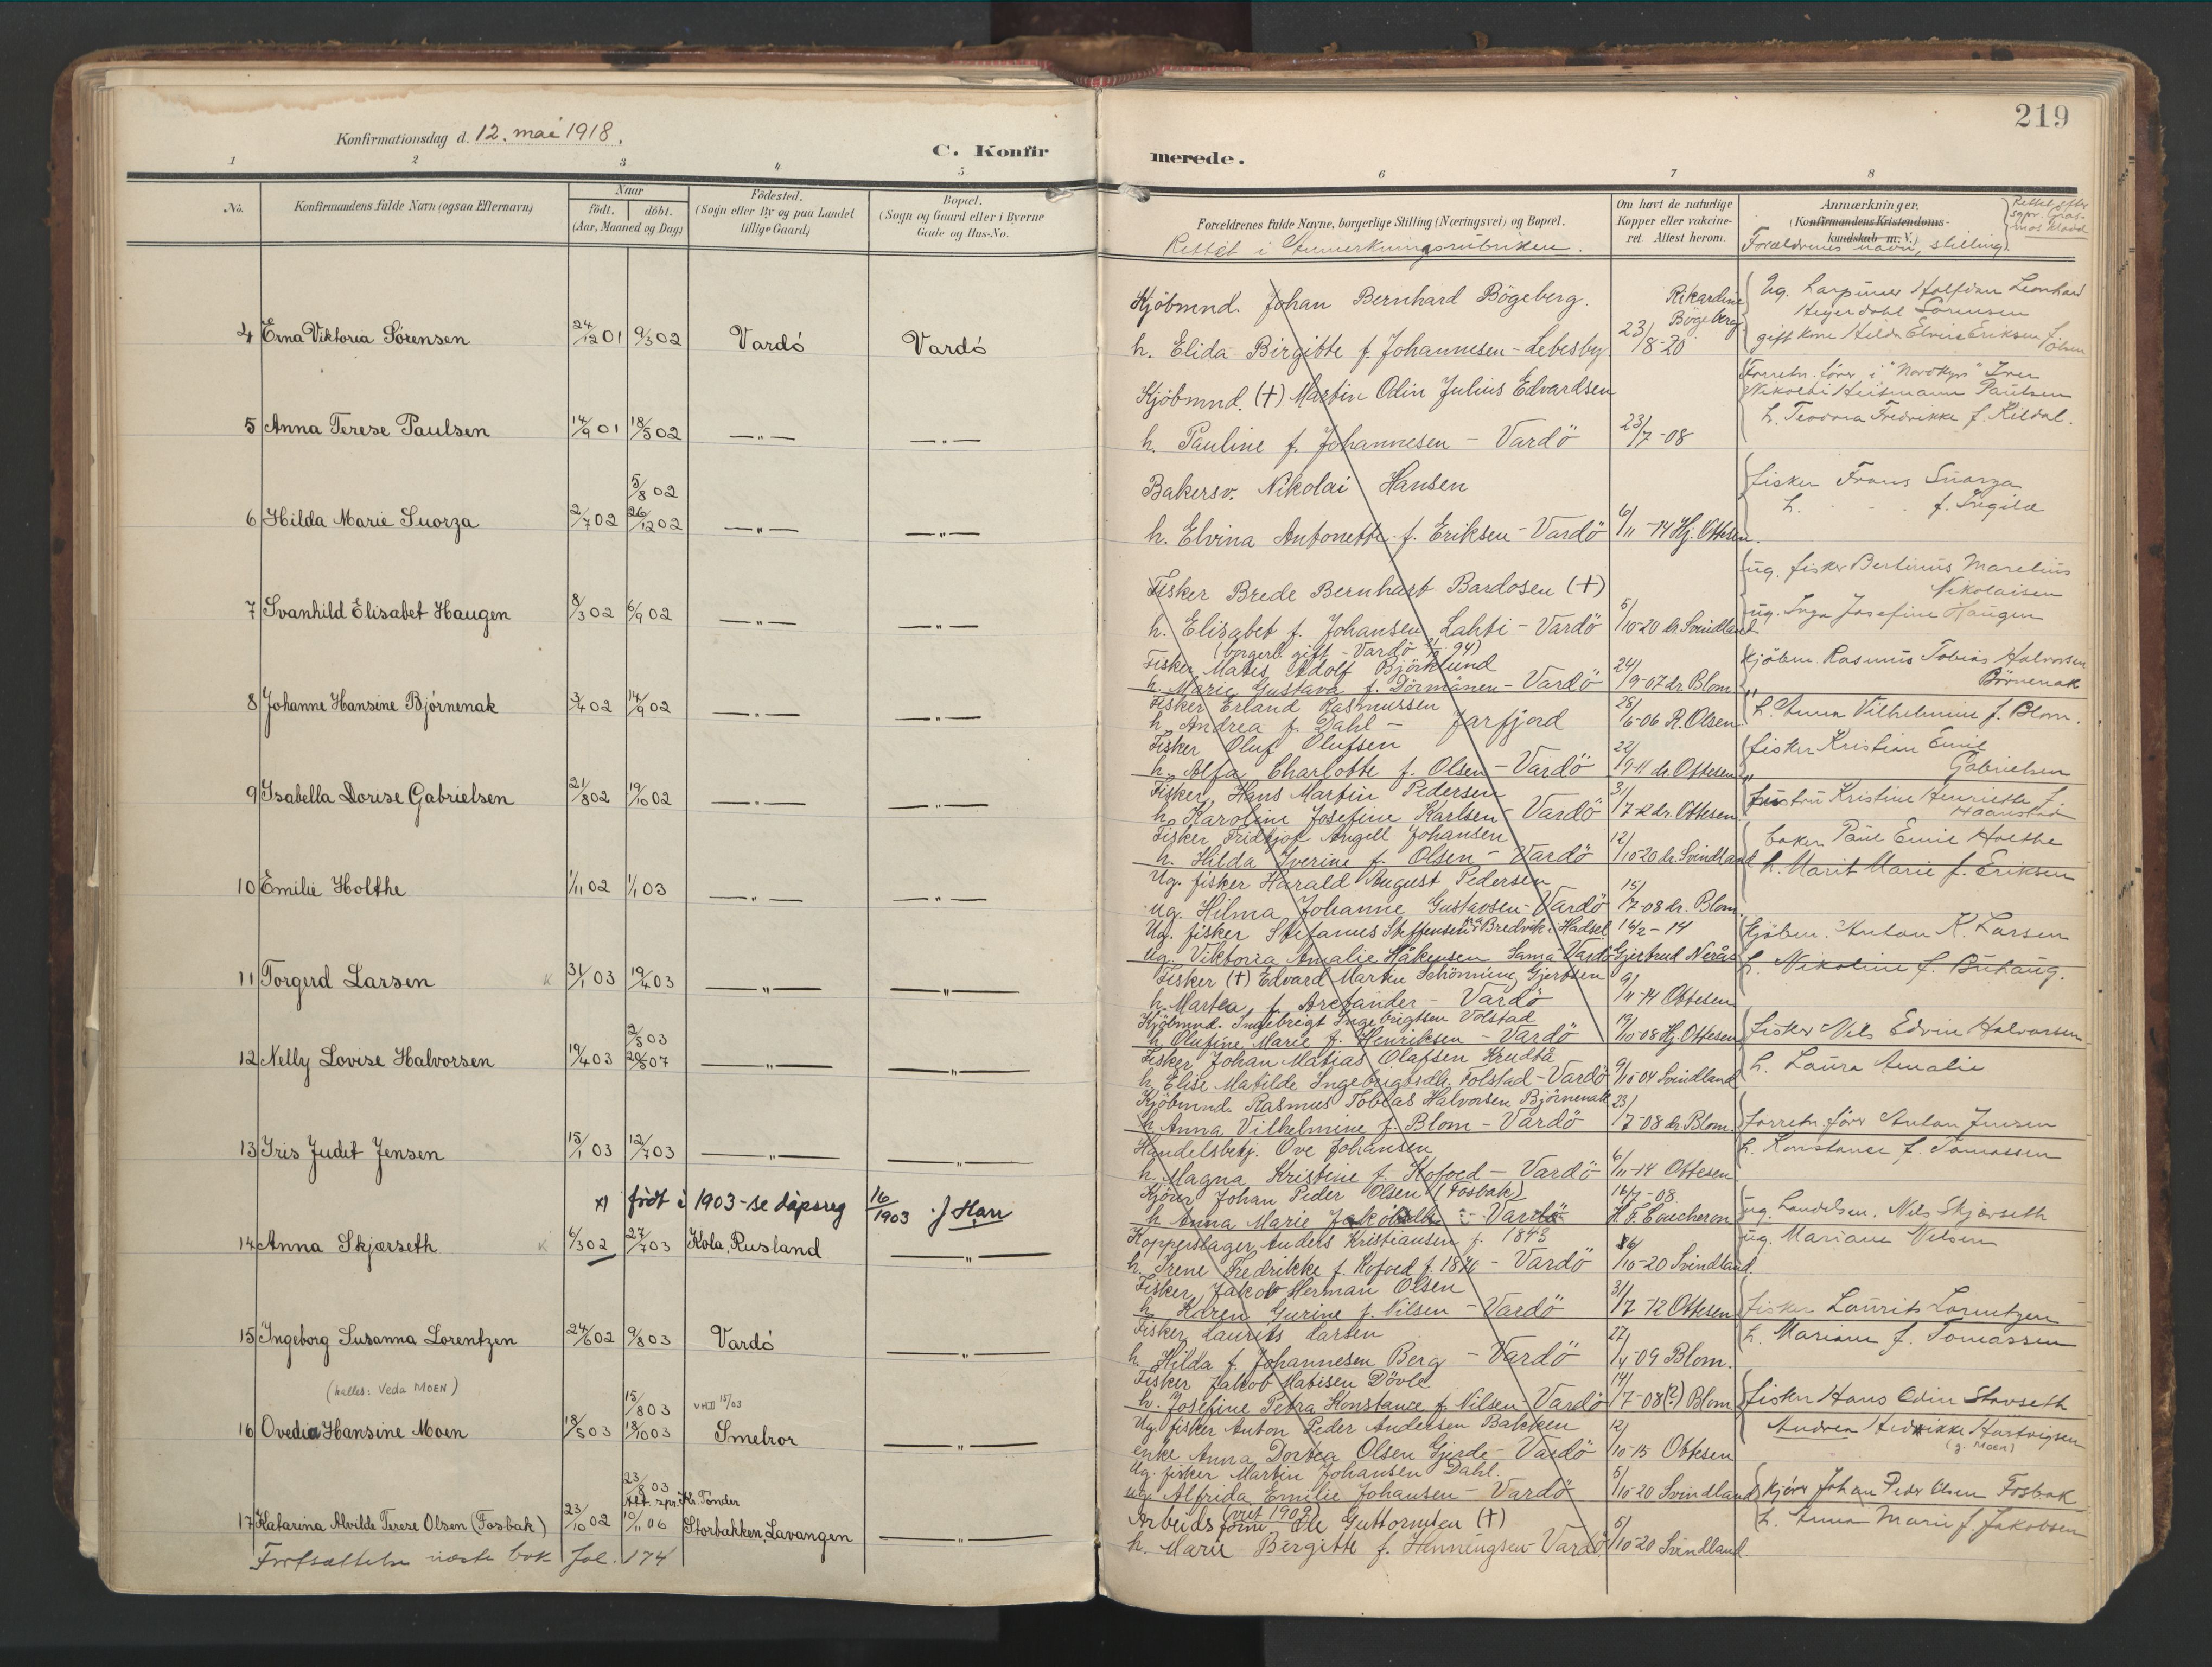 219
Konfirmationsdag d. 12. mai 1918.
C. Konfir
merede.
1 2 3 4 5
6 7 8
No.
Konfirmandens fulde Navn (ogsaa Efternavn)
Naar
födt. döbt.
(Aar, Maaned og Dag)
Födested.
(Sogn eller By og paa Landet
tillige Gaard)
Bopæl.
(Sogn og Gaard eller i Byerne
Gade og Hus-No.
Forældrenes fulde Navne, borgerlige Stilling (Næringsvei) og Bopæl.
Rettet i Anmerkningsrubriken.
Om havt de naturlige
Kopper eller vakcine-
ret. Attest herom.
Anmærkninger.
(Konfirmandens Kristendoms-
kundskab m. V.)
Forældrenes navn, stilling.
4 Erna Viktoria Sørensen 24/12 01 9/3 02 Vardö Vardö
5 Anna Terese Paulsen 14/9 01 18/5 02 —„— —„—
5/8 02
6 Hilda Marie Suorza 2/7 02 26/12 02 —„— —„—
7 Svanhild Elisabet Haugen 8/3 02 6/9 02 —„— —„—
8 Johanne Hansine Bjórnenak 3/4 02 14/9 02 —„— —„—
9 Isabella Dorise Gabrielsen 21/8 02 19/10 02 —„— —„—
10 Emilie Holthe 1/11 02 1/1 03 —„— —„—
11 Torgerd Larsen 31/1 03 19/4 03 —„— —„—
2/5 03
12 Nelly Lovise Halvorsen 19/4 03 20/5 07 —„— —„—
13 Iris Judit Jensen 15/1 03 12/7 03 —„— —„—
x) født i 1903 - se dåpsreg 16/1903 . J Harr
14 Anna Skjærseth 6/3 02 27/7 03 Kola, Rusland —„—
15 Ingeborg Susanna Lorentzen 24/6 02 9/8 03 Vardó —„—
(kalles: Veda MOEN)
15/8 03 VHII 15/03
16 Ovedia Hansine Moen 18/5 03 18/10 03 Smelror —„—
23/8 03
Att. spr. Kr. Tonder
17 Katarina Alvilde Terese Olsen (Fosbak) 23/10 02 10/11 06 Storbakken, Lavangen —„—
Fortsættelse næste bok fol. 174
Kjöbmnd. Johan Bernhard Bögeberg.
Rikardine
Bögeberg
h. Elida Birgitte f. Johannesen - Lebesby 23/8-20
Kjöbmnd. (+) Martin Odin Julius Edvardsen
h. Pauline f. Johannesen - Vardö 23/7-08
Bakersv. Nikolai Hansen
h. Elvina Antonette f. Eriksen - Vardö 6/11-14 Hj. Ottesen
Fisker Brede Bernhart Bardosen (+)
h. Elisabet f. Johansen Lahti - Vardö 5/10-20 dr Svindland
(borgerl. gift - Vardö 94)
Fisker Matis Adolf Björklund
h. Marie Gustava f. Dörmänen - Vardö 24/9-07 dr. Blom
Fisker Erland Rasmussen
h. Andrea f. Dahl - Jarfjord 25/6-06 R. Olsen
Fisker Oluf Olufsen
h. Alfa Charlotte f. Olsen - Vardö 22/9-11 dr. Ottesen
Fisker Hans Martin Pedersen
h. Karoline Josefine Karlsen - Vardö 31/7-12 dr. Ottesen
Fisker Fridtjof Angell Johansen
h. Hilda Iverine f. Olsen - Vardö 12/10-20 dr. Svindland
Ug. fisker Harald August Pedersen
ug. Hilma Johanne Gustavsen - Vardö 15/7-08 dr. Blom
Ug. fisker Stefanus Steffensen fra Bredvik i Hadsel 16/2-14
Ug. Viktoria Amalie Håkensen Sama Vardö Gjertrud Nerås
Fisker (+) Edvard Martin Schönning Gjertsen
h. Martea f. Arctander - Vardö 9/11-14 Ottesen
Kjöbmnd. Ingebrigt Ingebrigtsen Volstad
h. Olufine Marie f. Henriksen - Vardö 19/10-08 Hj. Ottesen
Fisker Johan Matias Olafsen Krudtå
h. Elise Matilde Ingebrigtsdtr. Tolstad - Vardö 9/10-04 Svindland
Kjöbmnd. Rasmus Tobias Halvorsen Björnenak
h. Anna Vilhelmine f. Blom - Vardö 23/7-08 dr. Blom
Handelsbetj. Ove Johansen
h. Magna Kristine f. Kofoed - Vardö 6/11-14 Ottesen
Kjörer Johan Peder Olsen (Fosbak)
h. Anna Marie Jakobsdtr - Vardö 16/7-08. H. F. Coucheron
Kopperslager Anders Kristiansen f. 1843
h. Irene Fredrikke f. Kofoed f. 1876 - Vardö 6/10-20 Svindland
Fisker Jakob Herman Olsen
h. Karen Gurine f. Nilsen - Vardö 31/7-12 Ottesen
Fisker Laurits Larsen
h. Hilda f. Johannesen Berg - Vardö 27/4-09 Blom.
Fisker Jakob Matisen Dövle
h. Josefine Petra Konstance f. Nilsen - Vardö 14/7-08(?) Blom
Ug. fisker Anton Peder Andersen Bakken
enke Anna Dortea Olsen Gjerde - Vardö 12/10-15 Ottesen
Ug. fisker Martin Johansen Dahl.
uga Alfrida Emilie Johansen - Vardö 5/10-20 Svindland
Arbeidsform Ole Guttormsen (+)
h. Marie Bergitte f. Henningsen Vardö 5/10-20 Svindland
Ug. Halfdan Leonhard
Heyerdahl Sörensen
gift kone Hilda Elvine Eriksen f. Olsen
Forretn. förer i "Nordkyn" Iver
Nikolai Heitmann Paulsen
h. Teodora Fredrikke f. Kildal.
fisker Frans Suorza
h. - - f. Ingilæ
ug. fisker Bertinus Marelius
Nikolaisen
ug. Inga Josefine Haugen
kjöbm. Rasmus Tobias Halvorsen
Börnenak
h. Anna Vilhelmine f. Blom.
fisker Kristian Emil
Gabrielsen
hustru Kristine Henriette f.
Haanstad
baker Paul Emil Holthe
h. Marit Marie f. Eriksen
Kjöbm. Anton K. Larsen
h. Nikoline f. Buhaug.
fisker Nils Edvin Halvorsen
h. Laura Amalie
forretn. förer Anton Jensen
h. Konstance f. Tomassen
ug. handelsm. Nils Skjærseth
ug. Mariane Nilsen
fisker Laurits Lorentzen
h. Mariane f. Tomassen
fisker Hans Odin Stavseth
Andrea Hedvikke Hartvigsen
(g. MOEN)
kjörer Johan Peder Olsen Fosbak
h. Anna Marie f. Jakobsen